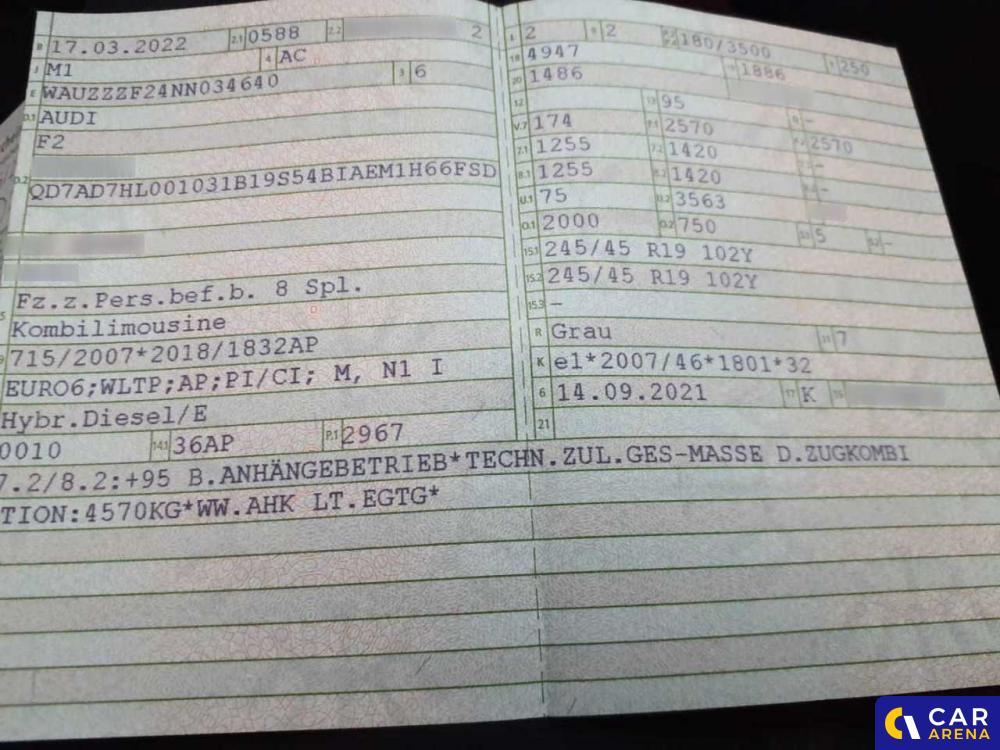 B 17.03.2022 2.1 0588 2.2 2
J M1 4 AC
E WAUZZZF24NN034640 3 6
D.1 AUDI
F2
D.2
QD7AD7HL001031B19S54BIAEM1H66FSD
5 Fz.z.Pers.bef.b. 8 Spl.
Kombilimousine
9 715/2007*2018/1832AP
EURO6;WLTP;AP;PI/CI; M, N1 I
Hybr.Diesel/E
0010 14.1 36AP P.1 2967
L 2 9 2 P.2 P.4 180/3500 T 250
18 4947
20 1486 19 1886
12 13 95
V.7 174 F.1 2570 F.2 2570
7.1 1255 7.2 1420 7.3 -
8.1 1255 8.2 1420 8.3 -
U.1 75 U.2 3563
O.1 2000 O.2 750 S.1 5 S.2 -
15.1 245/45 R19 102Y
15.2 245/45 R19 102Y
15.3 -
R Grau 11 7
K e1*2007/46*1801*32
6 14.09.2021 17 K 16
21
7.2/8.2:+95 B.ANHÄNGEBETRIEB*TECHN.ZUL.GES-MASSE D.ZUGKOMBI
TION:4570KG*WW.AHK LT.EGTG*
CAR
ARENA